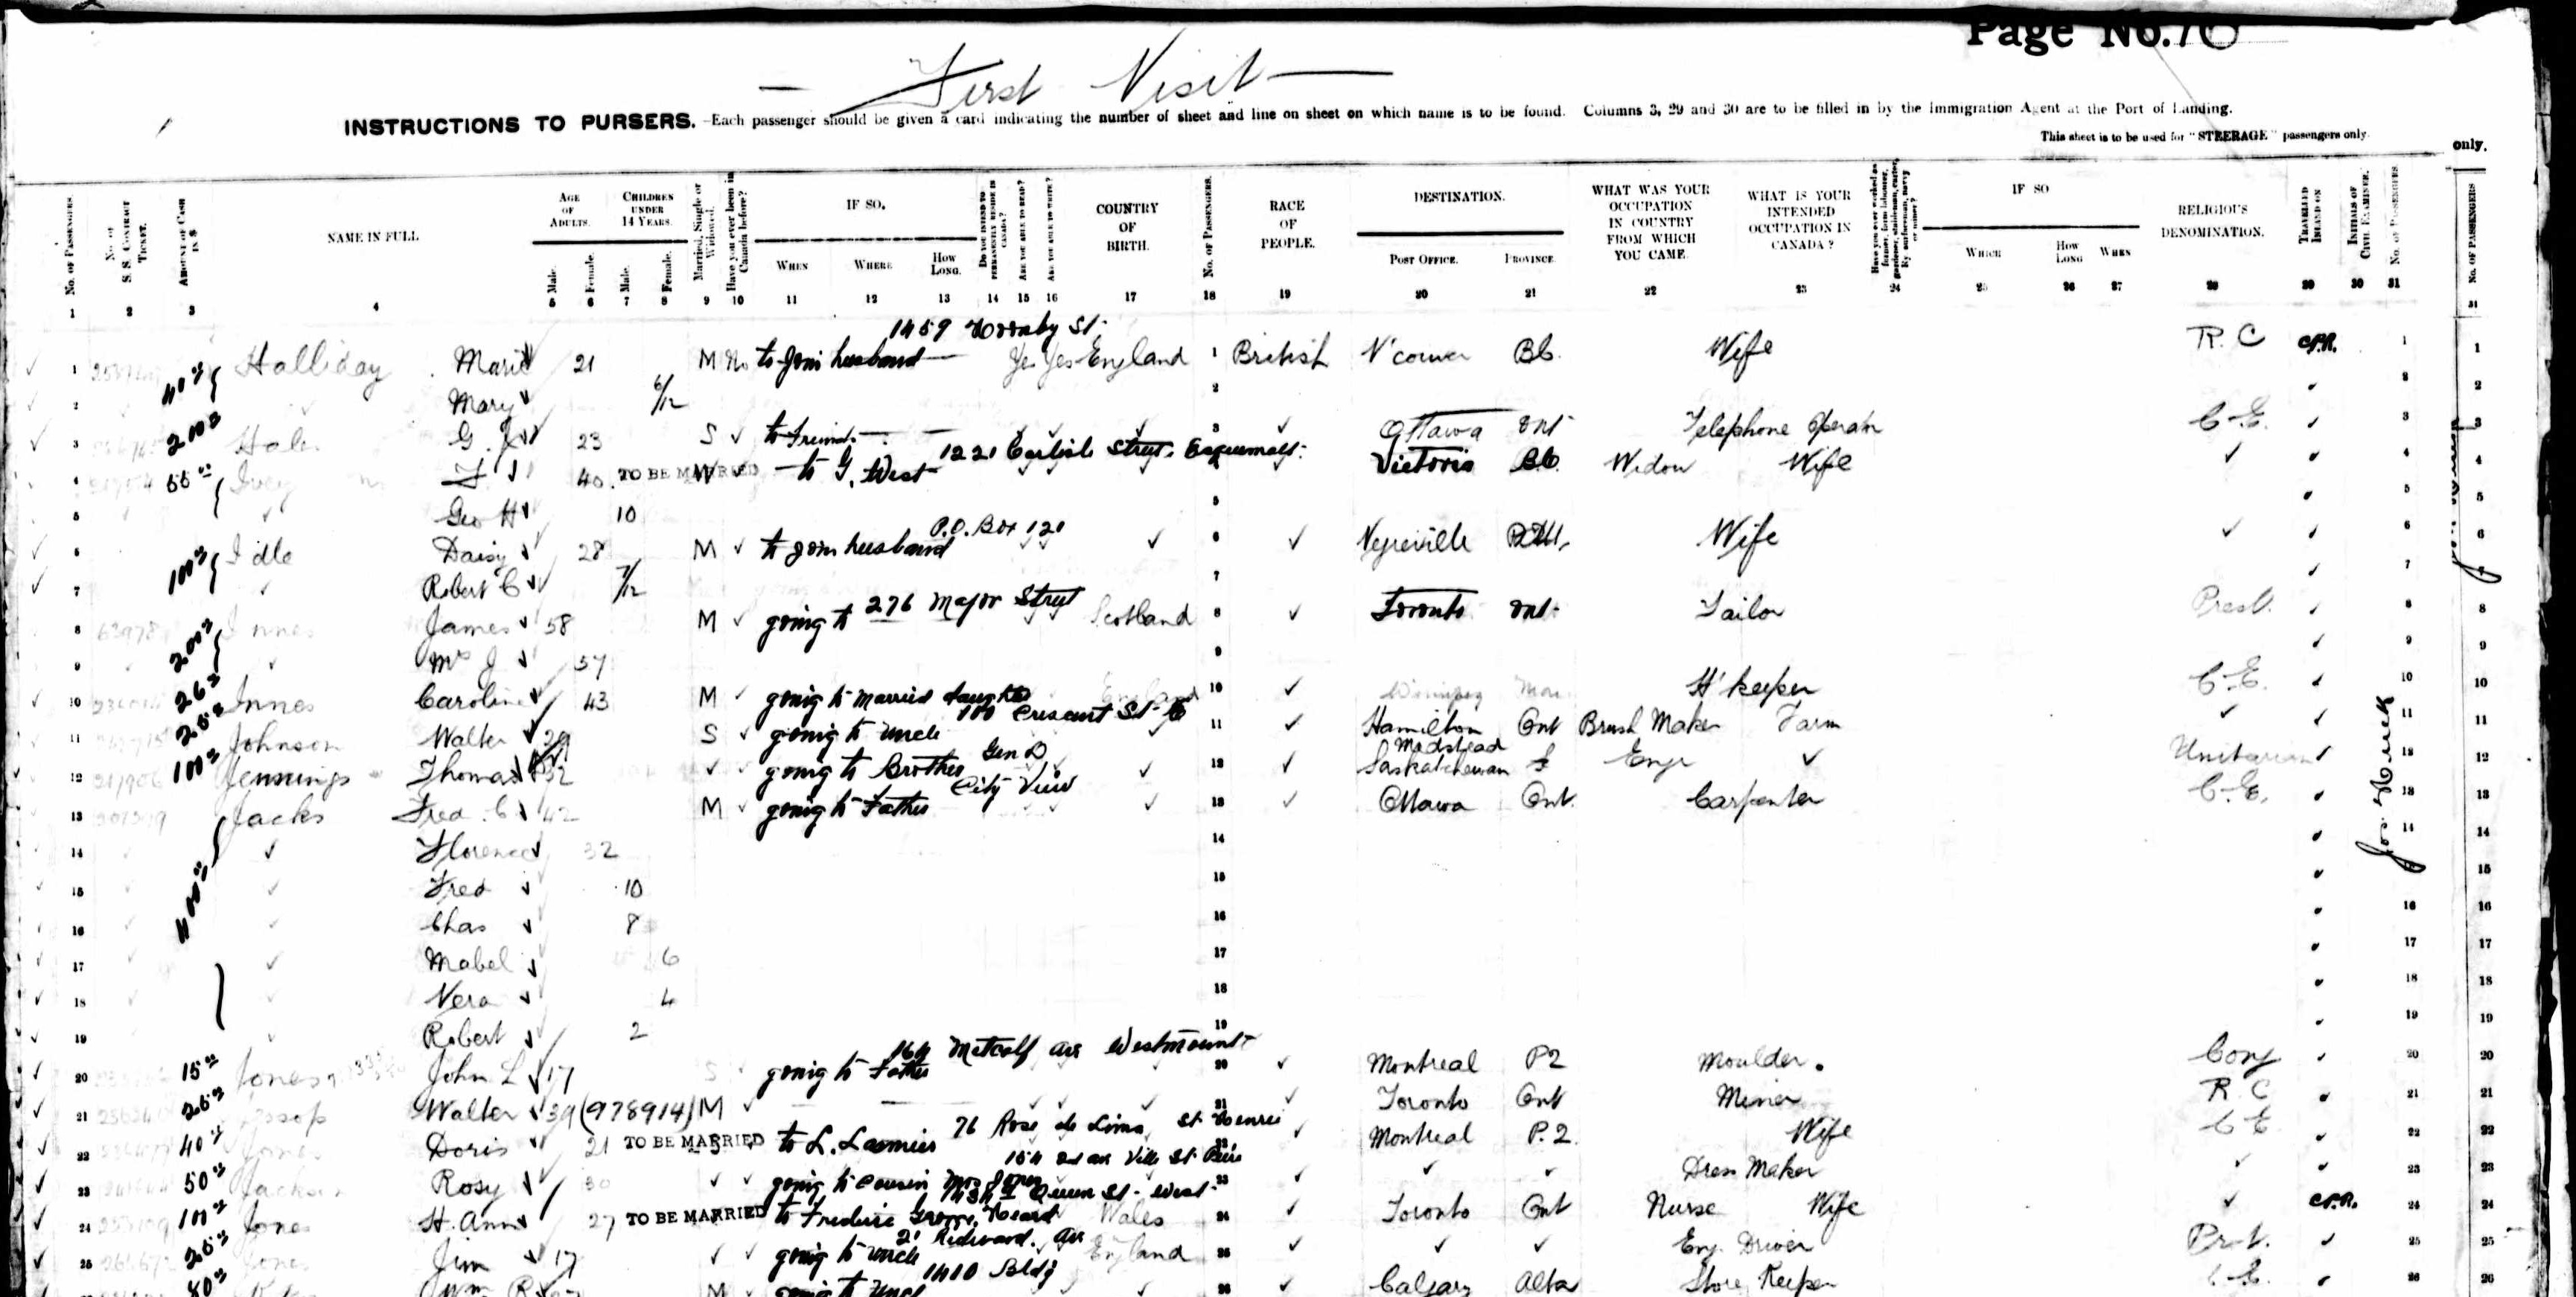 Page No. 70
First Visit
INSTRUCTIONS TO PURSERS. —Each passenger should be given a card indicating the number of sheet and line on sheet on which name is to be found. Columns 3, 29 and 30 are to be filled in by the Immigration Agent at the Port of Landing.
This sheet is to be used for "STEERAGE" passengers only.
only.
No. of Passengers. No. of S. S. Contract Ticket. Amount of Cash in $ NAME IN FULL Age of Adults. Children under 14 Years. Married, Single or Widowed. Have you ever been in Canada before? IF SO, Do you intend to permanently reside in Canada? Are you able to read? Are you able to write? COUNTRY OF BIRTH. No. of Passengers. RACE OF PEOPLE. DESTINATION. WHAT WAS YOUR OCCUPATION IN COUNTRY FROM WHICH YOU CAME. WHAT IS YOUR INTENDED OCCUPATION IN CANADA? IF SO RELIGIOUS DENOMINATION. Travelled Inland on Initials of Civil Examiner. No. of Passengers. No. of Passengers
Male. Female. Male. Female. When Where How Long. Post Office. Province. Which How Long When
1 2 3 4 5 6 7 8 9 10 11 12 13 14 15 16 17 18 19 20 21 22 23 24 25 26 27 28 29 30 31 31
1459 Hornby St.
1 Halliday Marie 21 M No to join husband — Yes Yes England 1 British V'couver B.C. Wife R.C C.P.R. 1 1
2 40 Mary 6/12 2 2 2
3 210 G. 23 S to friend — 3 Ottawa Ont Telephone C.E. 3 3
1221 Carlisle Street, Esquimalt
4 55 Ivey 40 TO BE MARRIED W to G. West Victoria B.C. Widow Wife 4 4
5 Geo H 10 5 5 5
P.O. Box 121
6 100 Idle Daisy 28 M to join husband 6 Vegreville Wife 6 6
7 Robert C 7/12 7 7
276 Major Street
8 63978 Innes James 58 M going to Scotland 8 Toronto Ont. Tailor Presb. 8 8
9 200 Mrs J 57 9 9 9
10 26 Innes Caroline 43 M going to married daughter England 10 Winnipeg Man H'keeper C.E. 10 10
100 Crescent St.
11 25 Johnson Walter S going to uncle 11 Hamilton Ont Brush Maker Farm 11 11
Gen D Madstead
12 100 Jennings Thomas 32 going to Brother 12 Saskatchewan S Engr Unitarian 12 12
City View
13 Jacks Fred. C 42 M going to Father 13 Ottawa Ont. Carpenter C.E. 13 13
14 Florence 32 14 14 14
15 Fred 10 15 15
16 Chas 8 16 16 16
17 Mabel 6 17 17 17
18 Vera 4 18 18 18
19 Robert 2 19 19 19
164 Metcalf Ave Westmount
20 15 Jones John L 17 S going to Father 20 Montreal P2 Moulder. Cong 20 20
21 25 Walter 39 (978914) M 21 Toronto Ont Miner R.C 21 21
76 Rose de Lima St Henri
22 40 Jones Doris 21 TO BE MARRIED to L. 22 Montreal P.2. Wife C E 22 22
154 2nd ave Ville St. Pierre
23 50 Jackson Rosy 30 going to cousin Mrs Jones 23 Dress Maker 23 23
Queen St. West
24 100 Jones H. Ann 27 TO BE MARRIED to Frederic Wales 24 Toronto Ont Nurse Wife C.P.R. 24 24
21 Ave
25 25 Jones Jim 17 going to uncle England 25 Eng. Driver 25 25
1410 Bldg
80 Wm R M going to 26 Calgary Alta Store Keeper C.E. 26 26